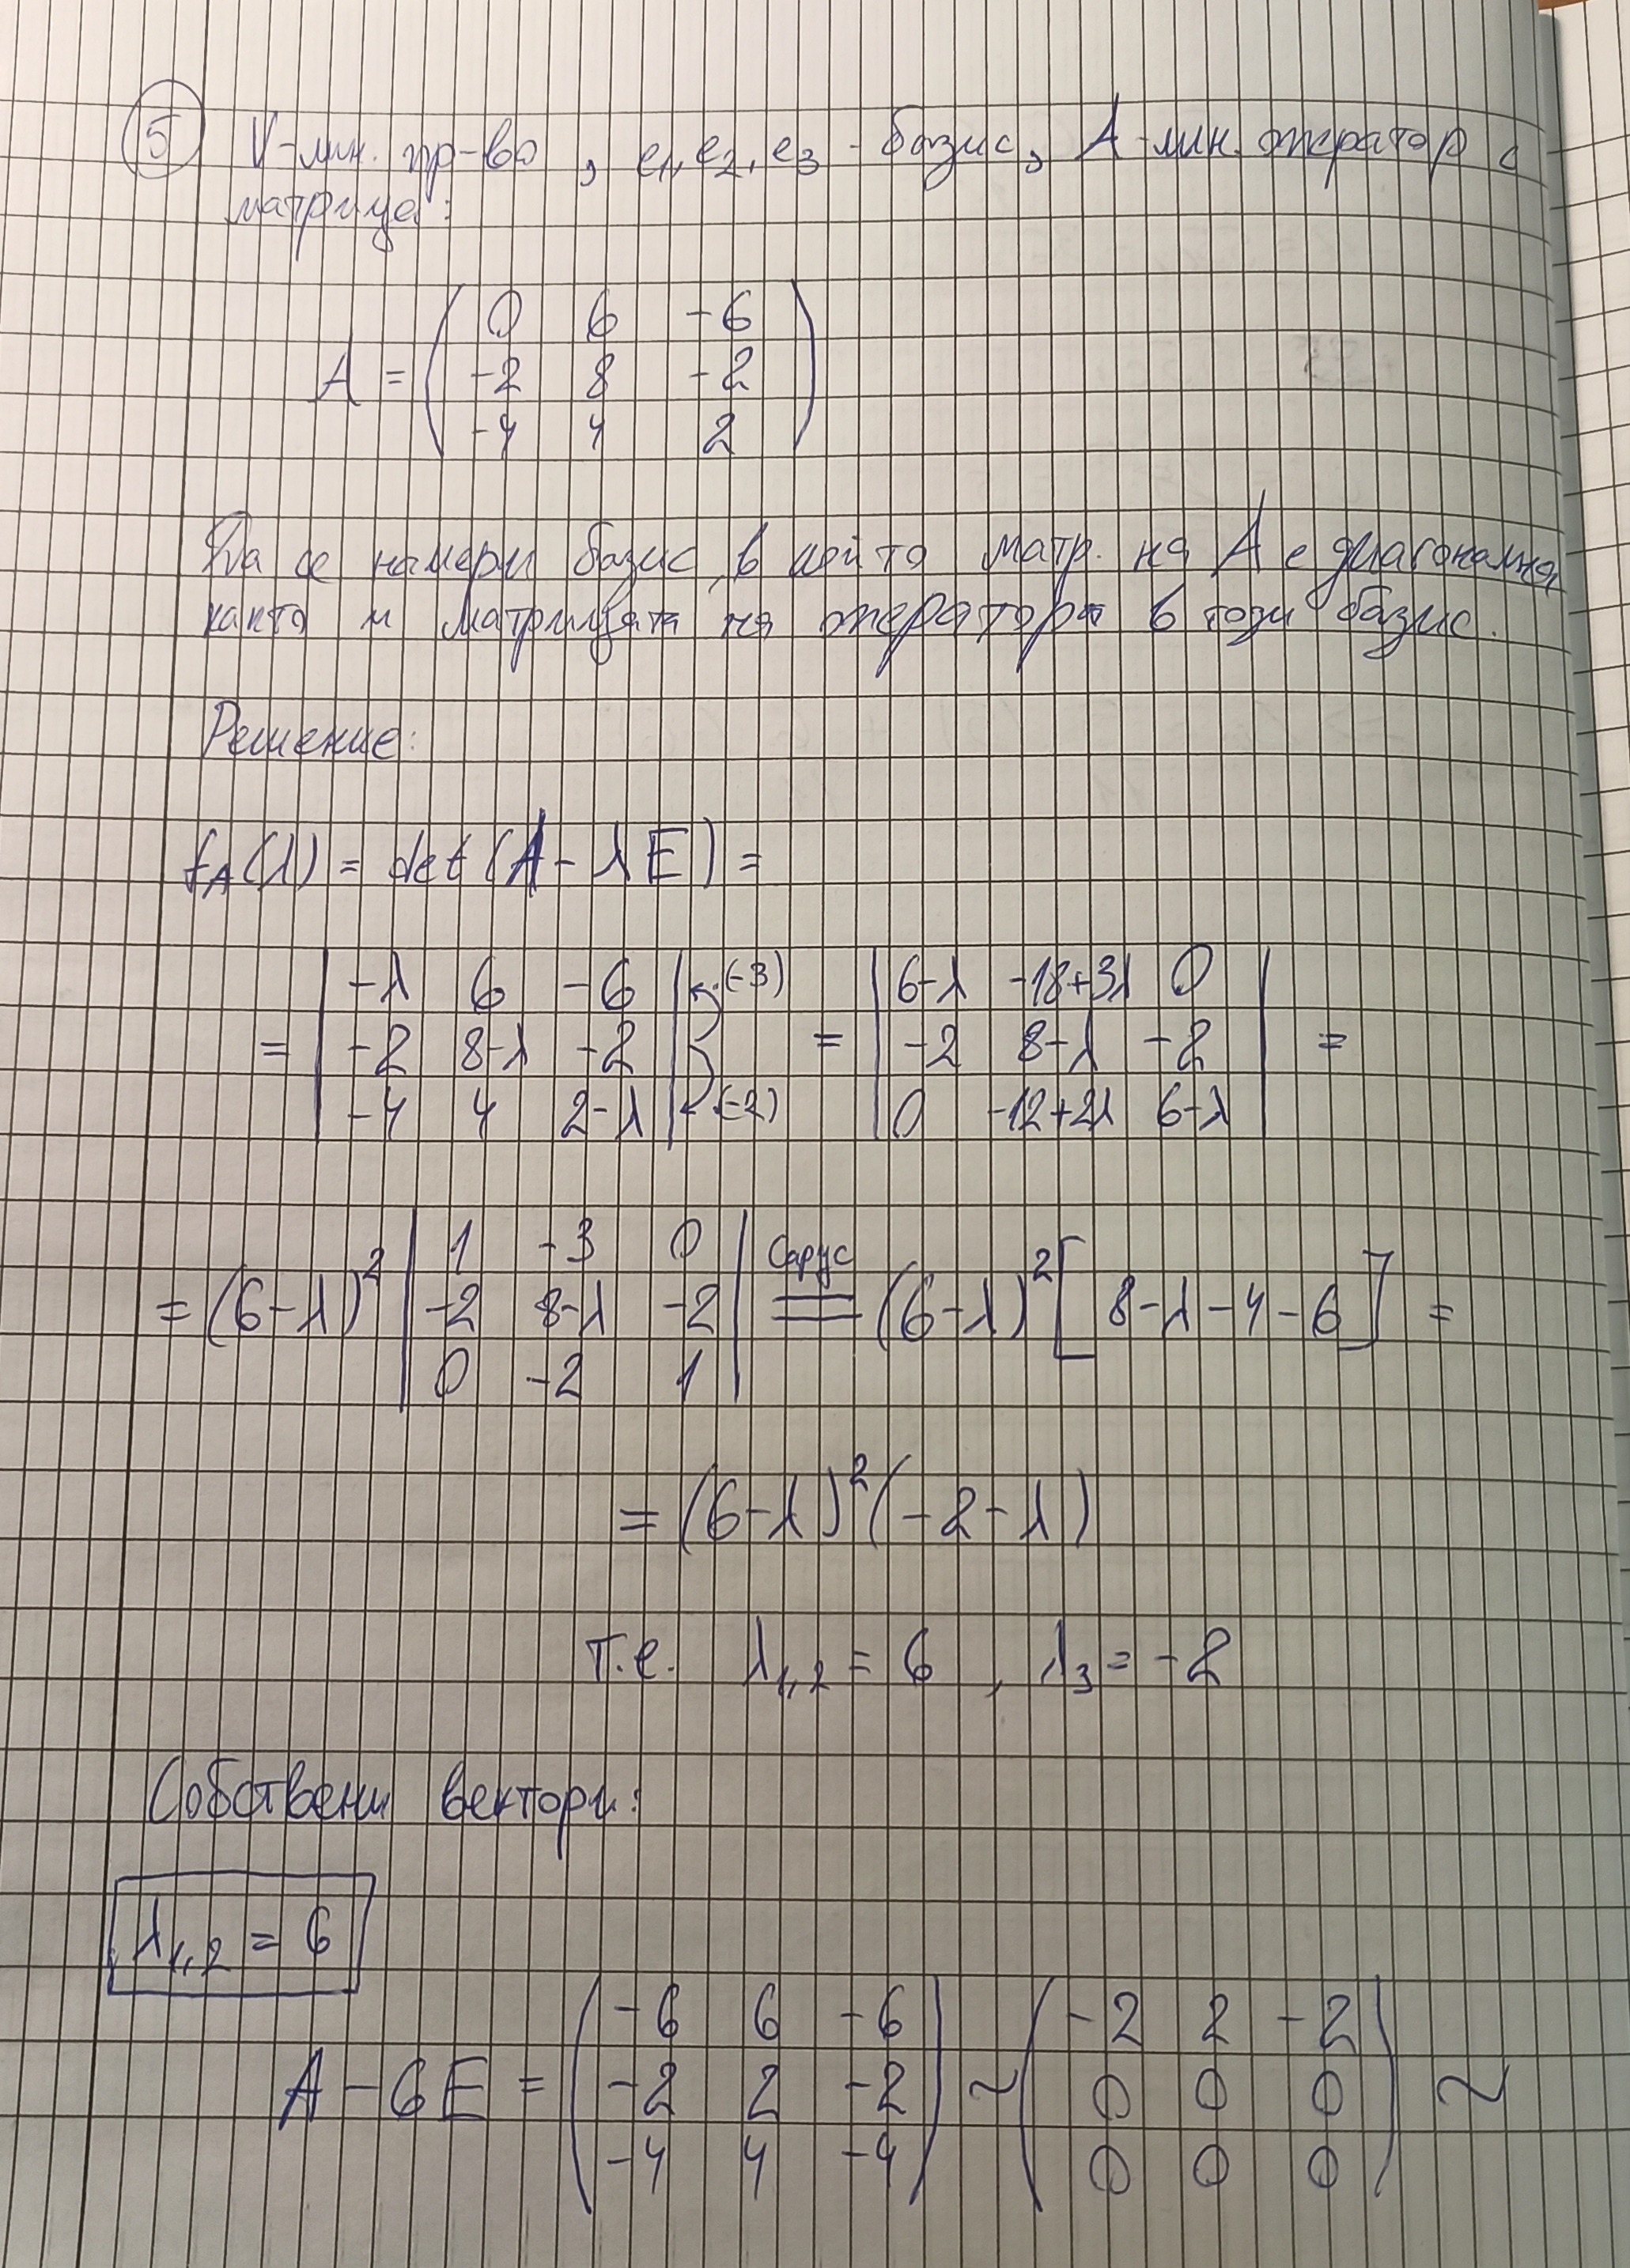 5 V-лин. пр-во, e1, e2, e3 - базис, A-лин. оператор с
матрица:
A = ( 0 6 -6
-2 8 -2
-4 4 2 )
Да се намери базис, в който матр. на A е диагонална,
както и матрицата на оператора в този базис.
Решение:
f_A(λ) = det(A - λE) =
= | -λ 6 -6 | (-3) = | 6-λ -18+3λ 0 | =
| -2 8-λ -2 | | -2 8-λ -2 |
| -4 4 2-λ | (-2) | 0 -12+2λ 6-λ |
= (6-λ)² | 1 -3 0 | Сарус
| -2 8-λ -2 | = (6-λ)² [8-λ-4-6] =
| 0 -2 1 |
= (6-λ)² (-2-λ)
т.е. λ1,2 = 6, λ3 = -2
Собствени вектори:
λ1,2 = 6
A - 6E = ( -6 6 -6 ) ~ ( -2 2 -2 ) ~
( -2 2 -2 ) ( 0 0 0 )
( -4 4 -4 ) ( 0 0 0 )